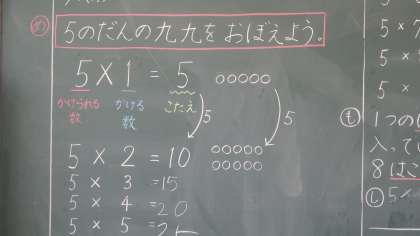 め 5のだんの九九をおぼえよう。
5×1=5 ○○○○○
かけられる数 かける数 こたえ
5 5
5×2=10 ○○○○○
○○○○○
5×3=15
5×4=20
5×5=25
も
1つの
入って
8はこ
じ 5
5×
5×
5×